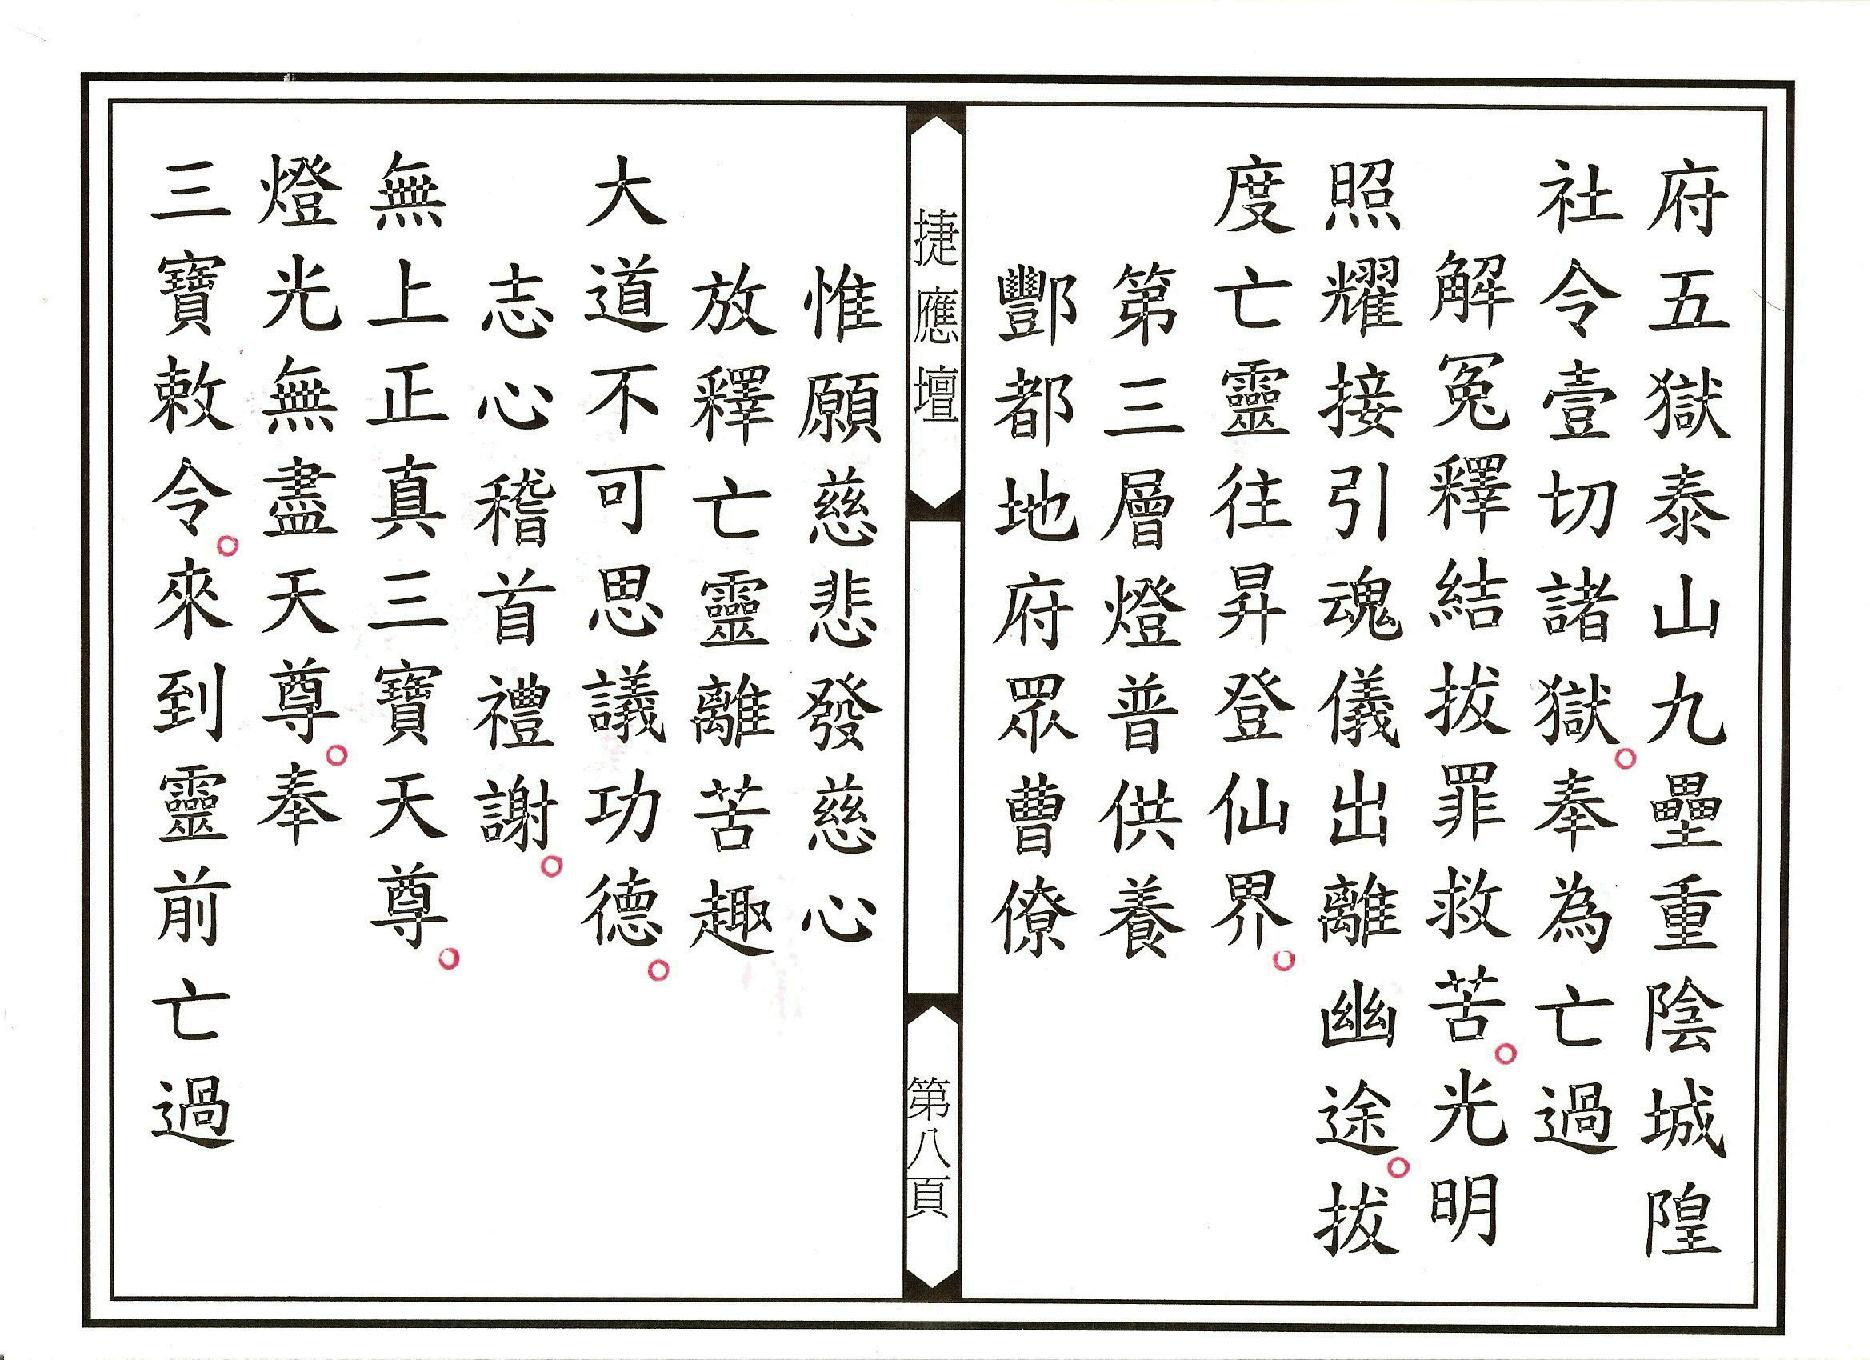 府五獄泰山九壘重陰城隍
社令壹切諸獄。奉為亡過
解冤釋結拔罪救苦。光明
照耀接引魂儀出離幽途。拔
度亡靈往昇登仙界。
第三層燈普供養
酆都地府眾曹僚
捷應壇
第八頁
惟願慈悲發慈心
放釋亡靈離苦趣
大道不可思議功德。
志心稽首禮謝。
無上正真三寶天尊。
燈光無盡天尊。奉
三寶敕令。來到靈前亡過